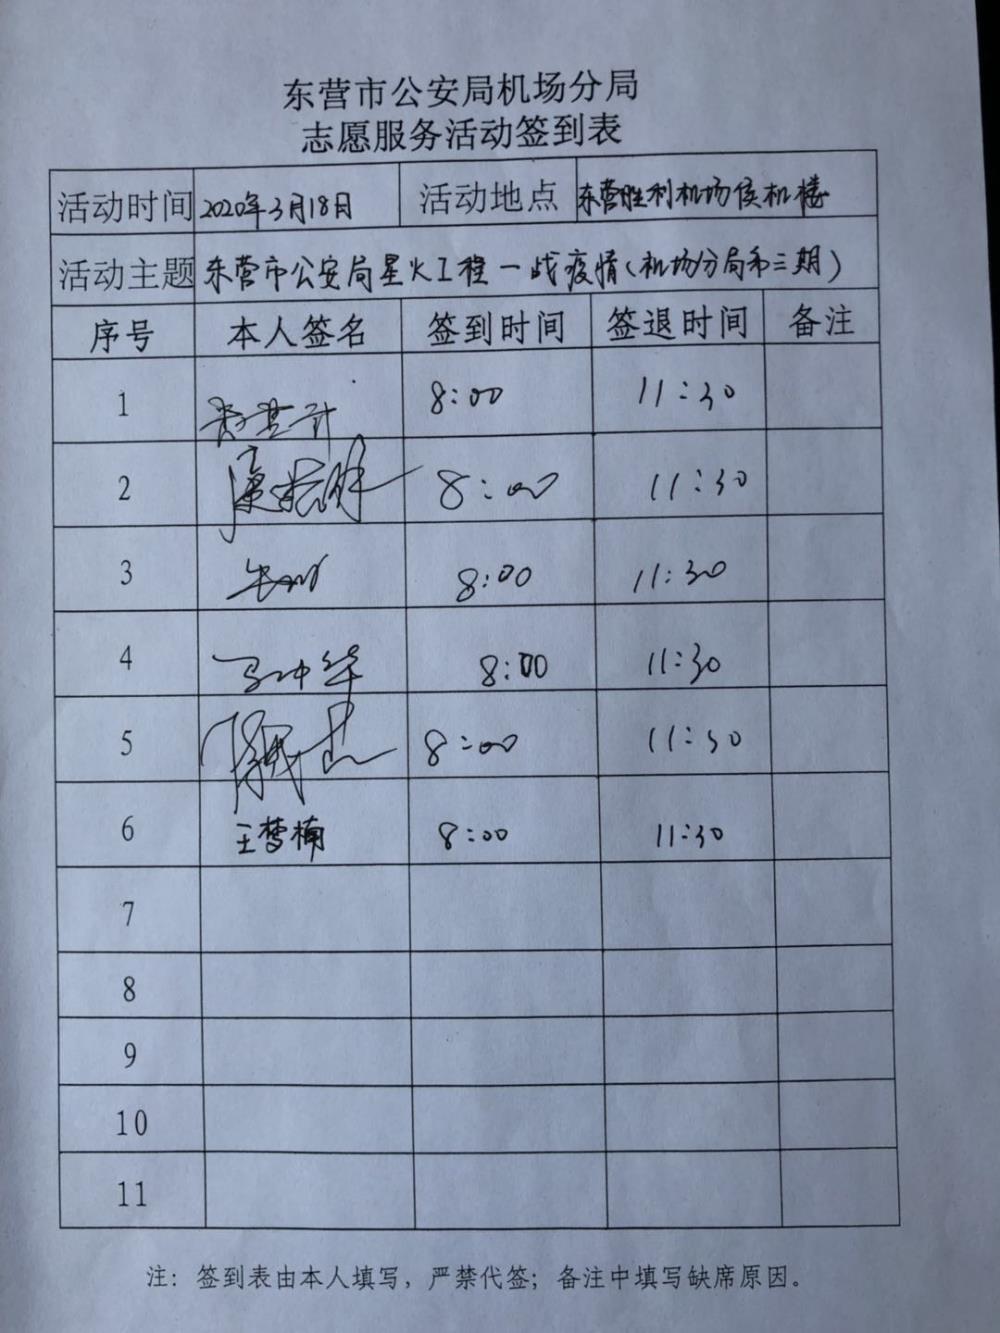 东营市公安局机场分局
志愿服务活动签到表
活动时间 2020年3月18日 活动地点 东营胜利机场侯机楼
活动主题 东营市公安局星火工程一战疫情(机场分局和三期)
序号 本人签名 签到时间 签退时间 备注
1 8:00 11:30
2 8:00 11:30
3 8:00 11:30
4 马中华 8:00 11:30
5 8:00 11:30
6 王梦楠 8:00 11:30
7
8
9
10
11
注：签到表由本人填写，严禁代签；备注中填写缺席原因。